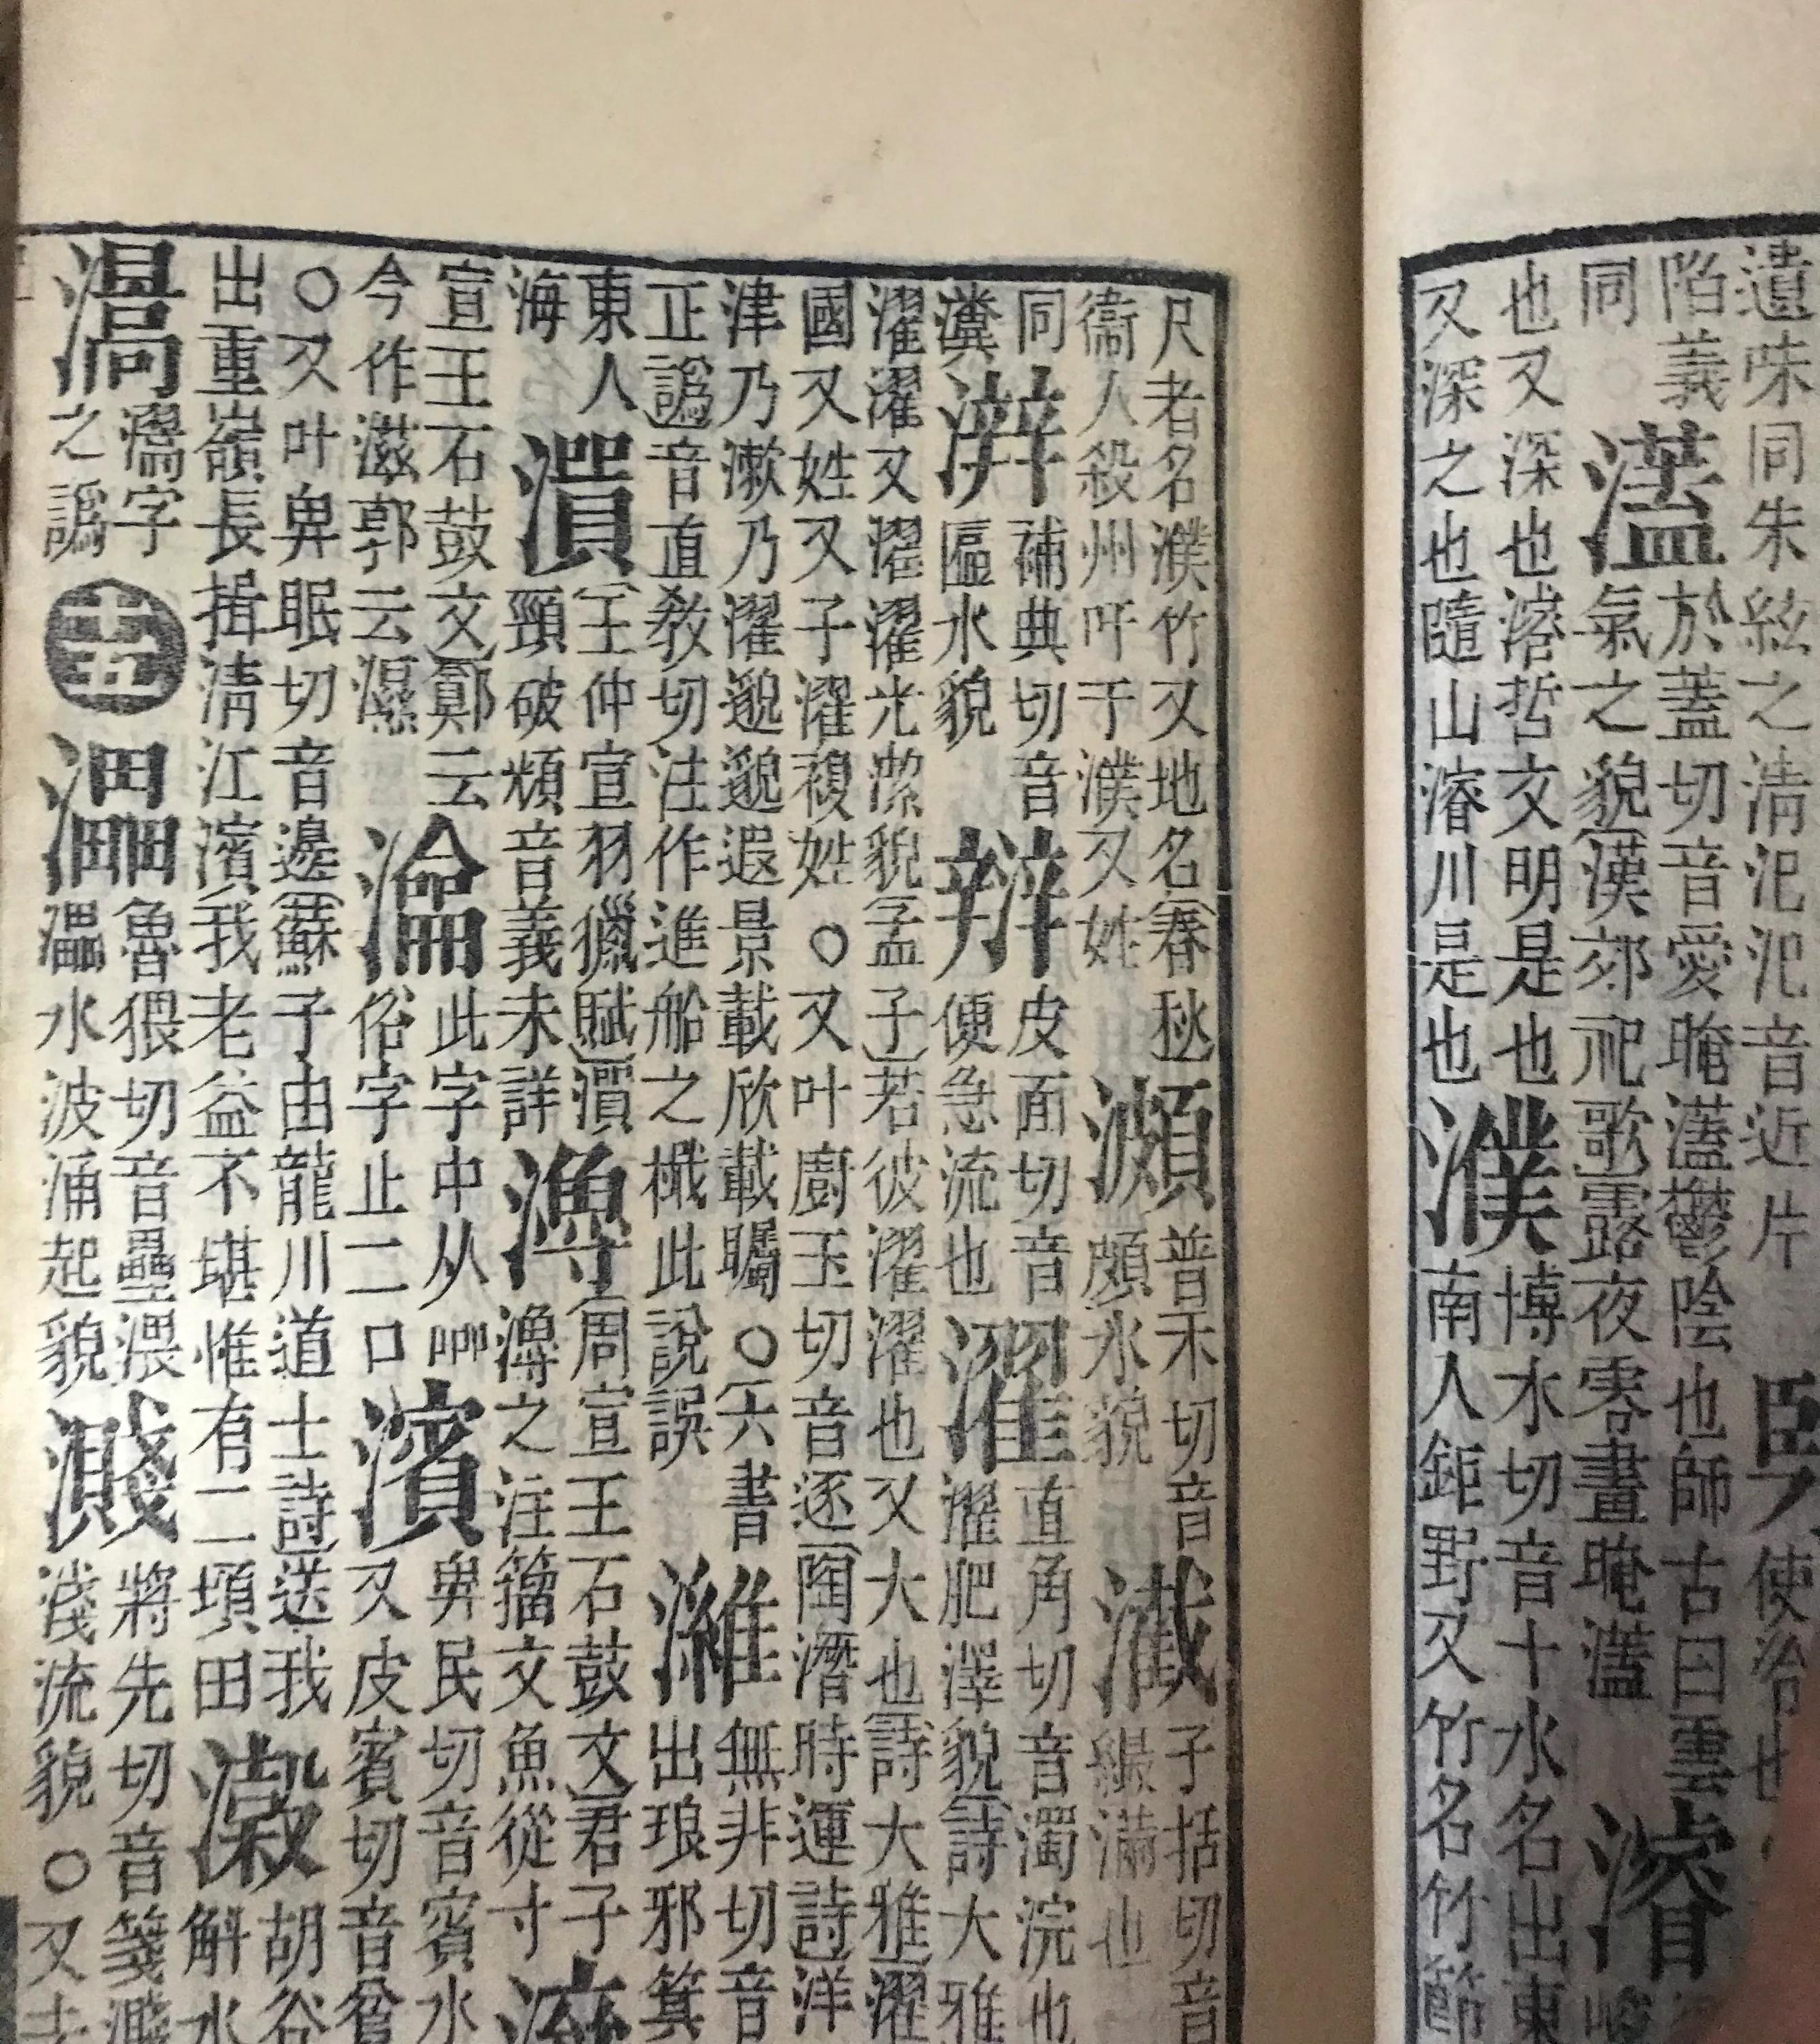 遺味同朱絃之清汜汜音近片
使冷也
陷義
同
濭
於蓋切音愛晻濭鬱陰也師古曰雲
氣之貌漢郊祀歌露夜零晝晻濭
濬
也又深也濬哲文明是也
又深之也隨山濬川是也
濮
博木切音卜水名出東
南人鉅野又竹名竹節
尺者名濮竹又地名春秋
衞人殺州吁于濮又姓
普禾切音
頗水貌
子括切音
繓滿也
同
瀵
補典切音
匾水貌
皮面切音
便急流也
濯
直角切音濁浣也
濯肥澤貌詩大雅
濯濯又濯濯光潔貌孟子若彼濯濯也又大也詩大雅濯
國又姓又子濯複姓○又叶廚玉切音逐陶潛時運詩洋
津乃漱乃濯邈邈遐景載欣載矚○六書
正譌音直敎切注作進船之檝此說誤
濰
無非切音
出琅邪箕
東人
海
王仲宣羽獵賦
頸破頰音義未詳
周宣王石鼓文君子
之注籀文魚從寸
宣王石鼓文鄭云
今作滋郭云濕
此字中从㗊
俗字止二口
濱
𢌿民切音賓水
又皮賓切音貧
○又叶𢌿眠切音邊蘇子由龍川道士詩送我
出重嶺長揖清江濱我老益不堪惟有二頃田
瀔
胡谷
斛水
字
之譌
十五
魯猥切音壘渨
水波涌起貌
濺
將先切音箋濺
淺流貌○又去